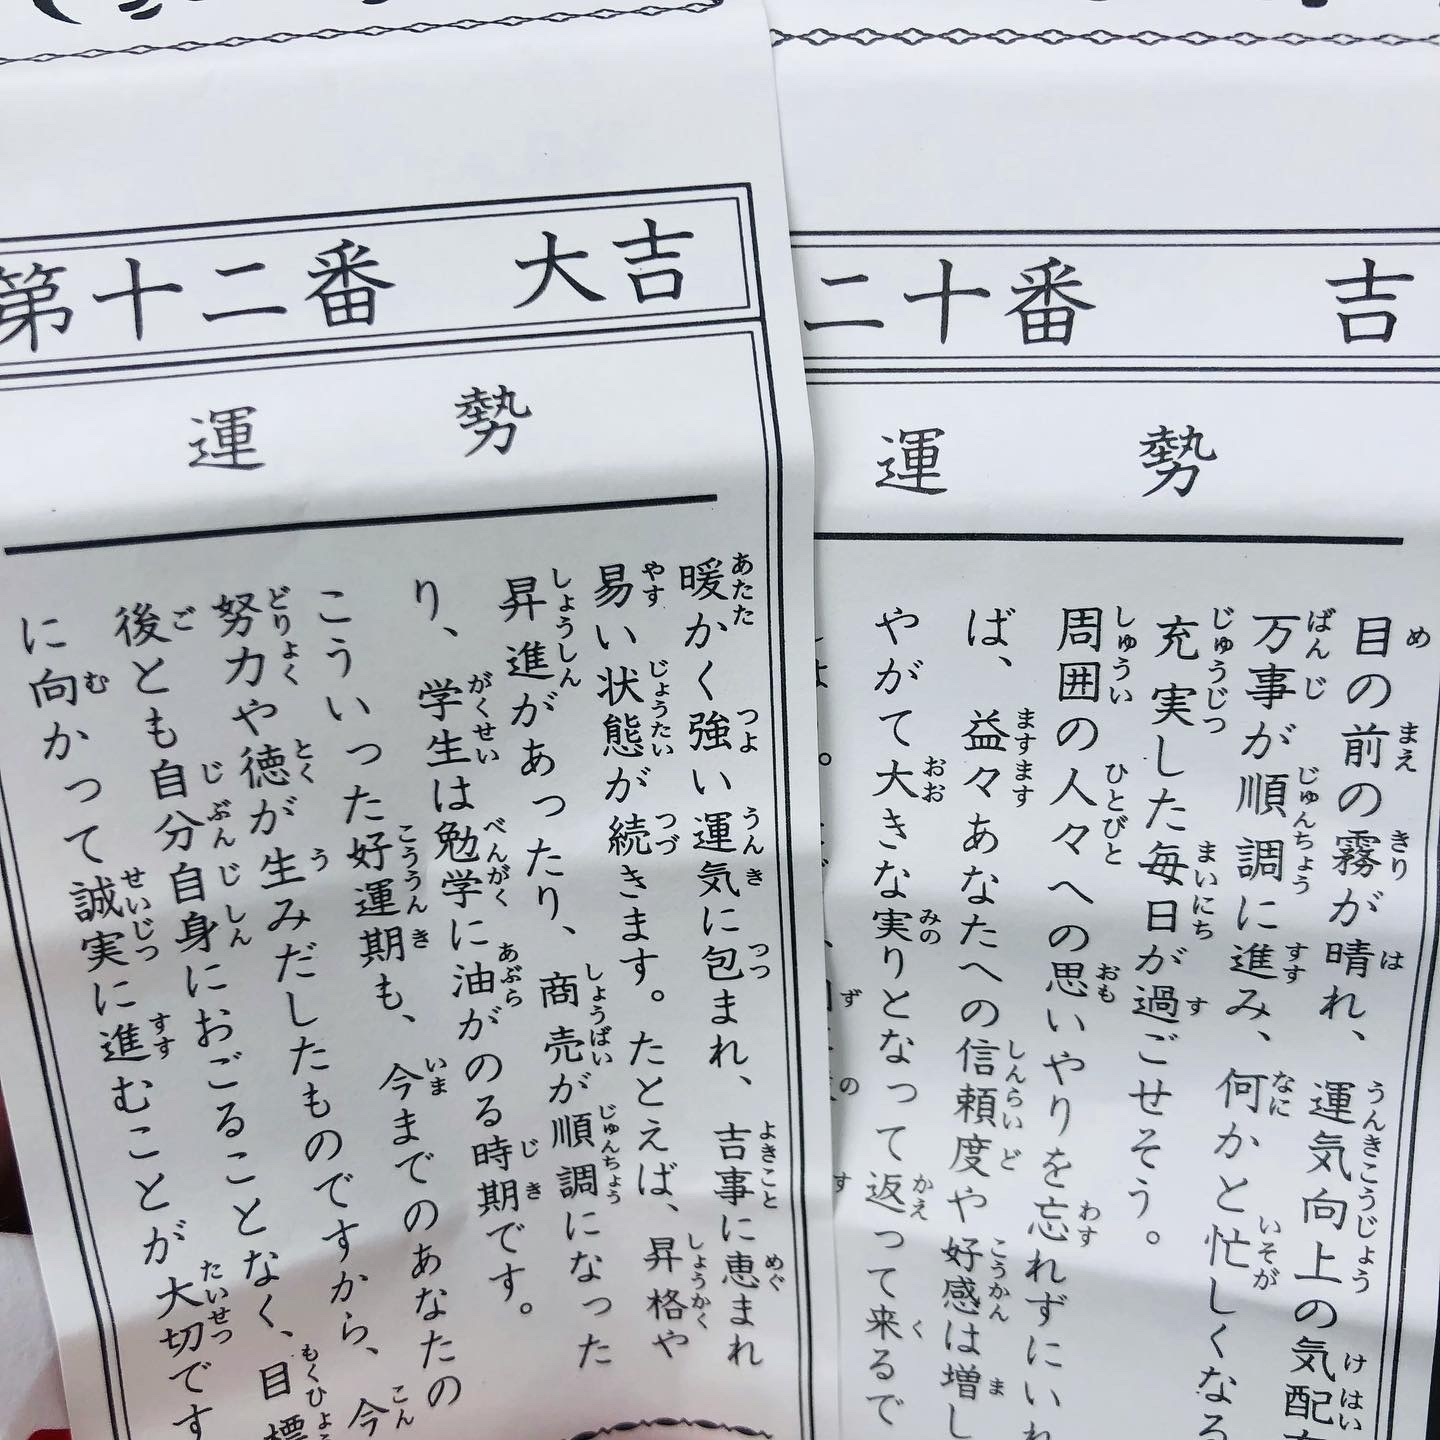 第十二番 大吉
運勢
暖かく強い運気に包まれ、吉事に恵まれ
易い状態が続きます。たとえば、昇格や
昇進があったり、商売が順調になった
り、学生は勉学に油がのる時期です。
こういった好運期も、今までのあなたの
努力や徳が生みだしたものですから、今
後とも自分自身におごることなく、目標
に向かって誠実に進むことが大切です
二十番 吉
運勢
目の前の霧が晴れ、運気向上の気配
万事が順調に進み、何かと忙しくなる
充実した毎日が過ごせそう。
周囲の人々への思いやりを忘れずにいれ
ば、益々あなたへの信頼度や好感は増し
やがて大きな実りとなって返って来るで